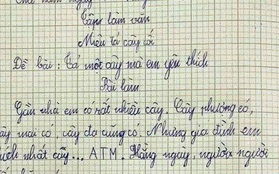 Tập làm văn
Miêu tả cây cối
Đề bài: Tả một cây mà em yêu thích
Bài làm
Gần nhà em có rất nhiều cây. Cây phượng có,
cây mai có, cây đa cũng có. Nhưng gia đình em
thích nhất cây... ATM. Hằng ngày, người người